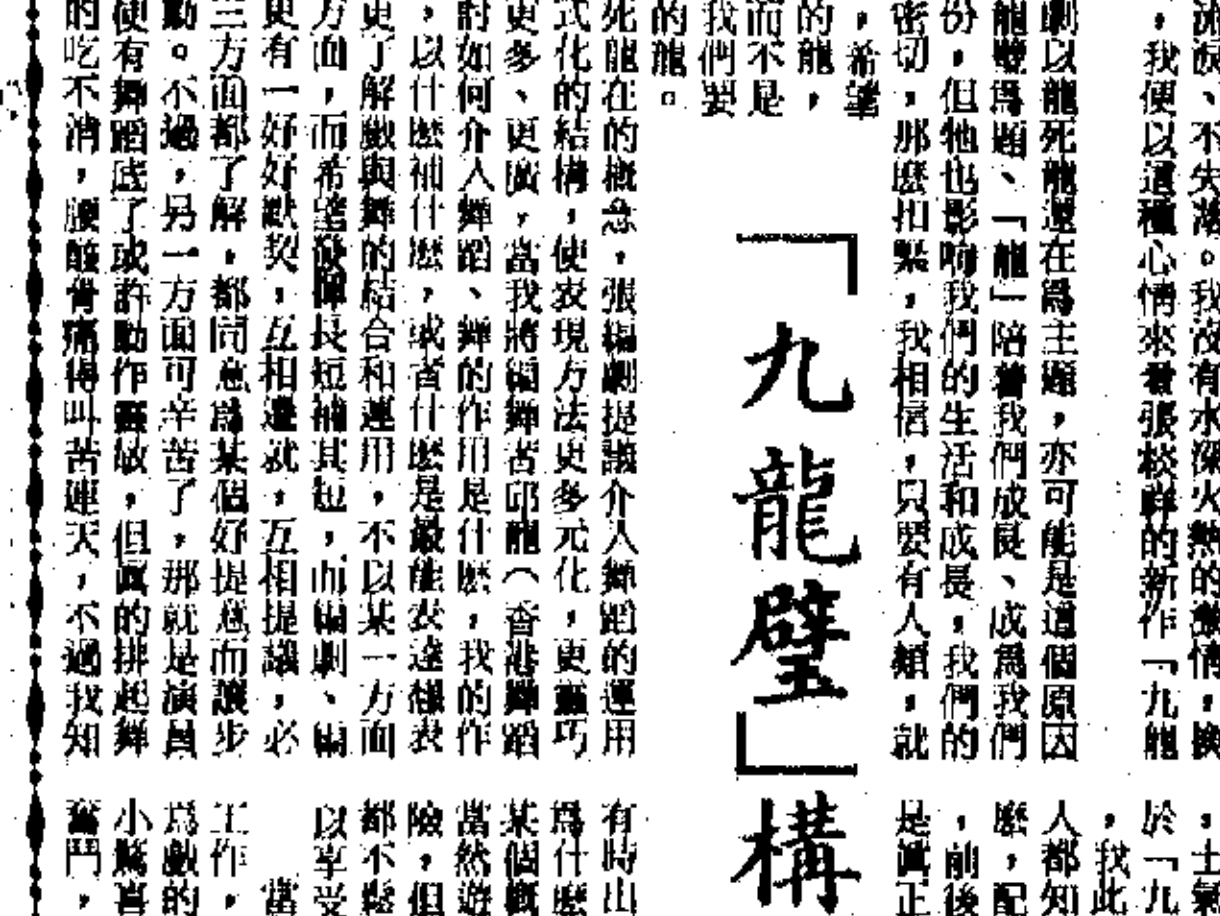 流淚、不失落。我沒有水深火熱的激情，換
，我便以這種心情來看張棪祥的新作「九龍
劇以龍死龍還在爲主題，亦可能是這個原因
龍璧爲題、「龍」陪着我們成長、成爲我們
份，但牠也影响我們的生活和成長，我們的
密切，那麽扣緊，我相信，只要有人類，就
，希望
的龍，
而不是
我們要
的龍。
「九龍壁」構
死龍在的概念，張編劇提議介入舞蹈的運用
式化的結構，使表現方法更多元化，更靈巧
更多、更廣，當我將編舞苦邱龍（香港舞蹈
討如何介入舞蹈、舞的作用是什麽，我的作
，以什麽補什麽，或者什麽是最能表達想表
更了解戲與舞的結合和運用，不以某一方面
方面，而希望發揮長短補其短，而編劇、編
更有一好好默契，互相遷就，互相提議，必
三方面都了解，都同意爲某個好提意而讓步
動。不過，另一方面可辛苦了，那就是演員
使有舞蹈底了或許動作靈敏，但眞的排起舞
的吃不消，腰酸骨痛得叫苦連天，不過我知
，士氣
於「九
，我此
人都知
麽，配
，前後
是眞正
有時出
爲什麽
某個概
當然遊
險，但
都不鬆
以享受
當
工作，
爲戲的
小驚喜
奮鬥，